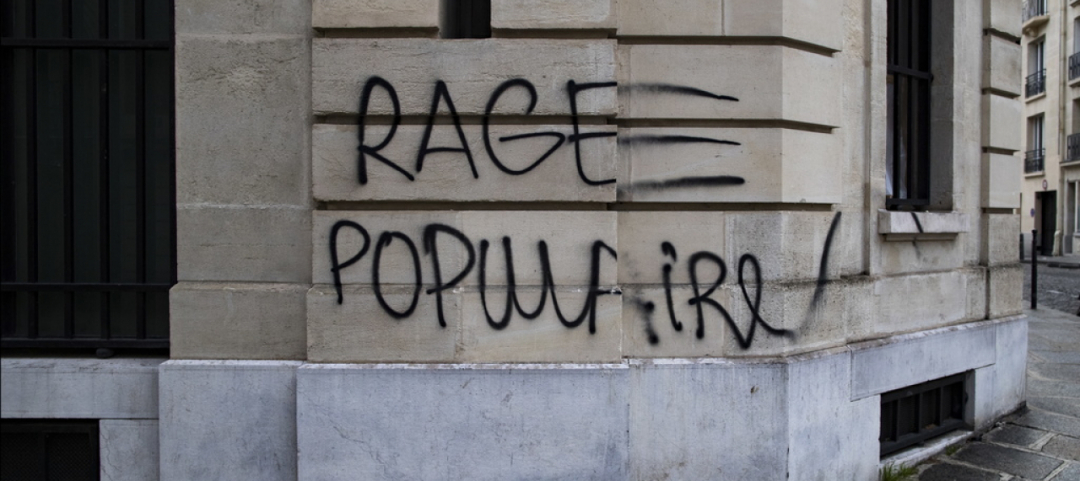 RAGE
POPULAIRE